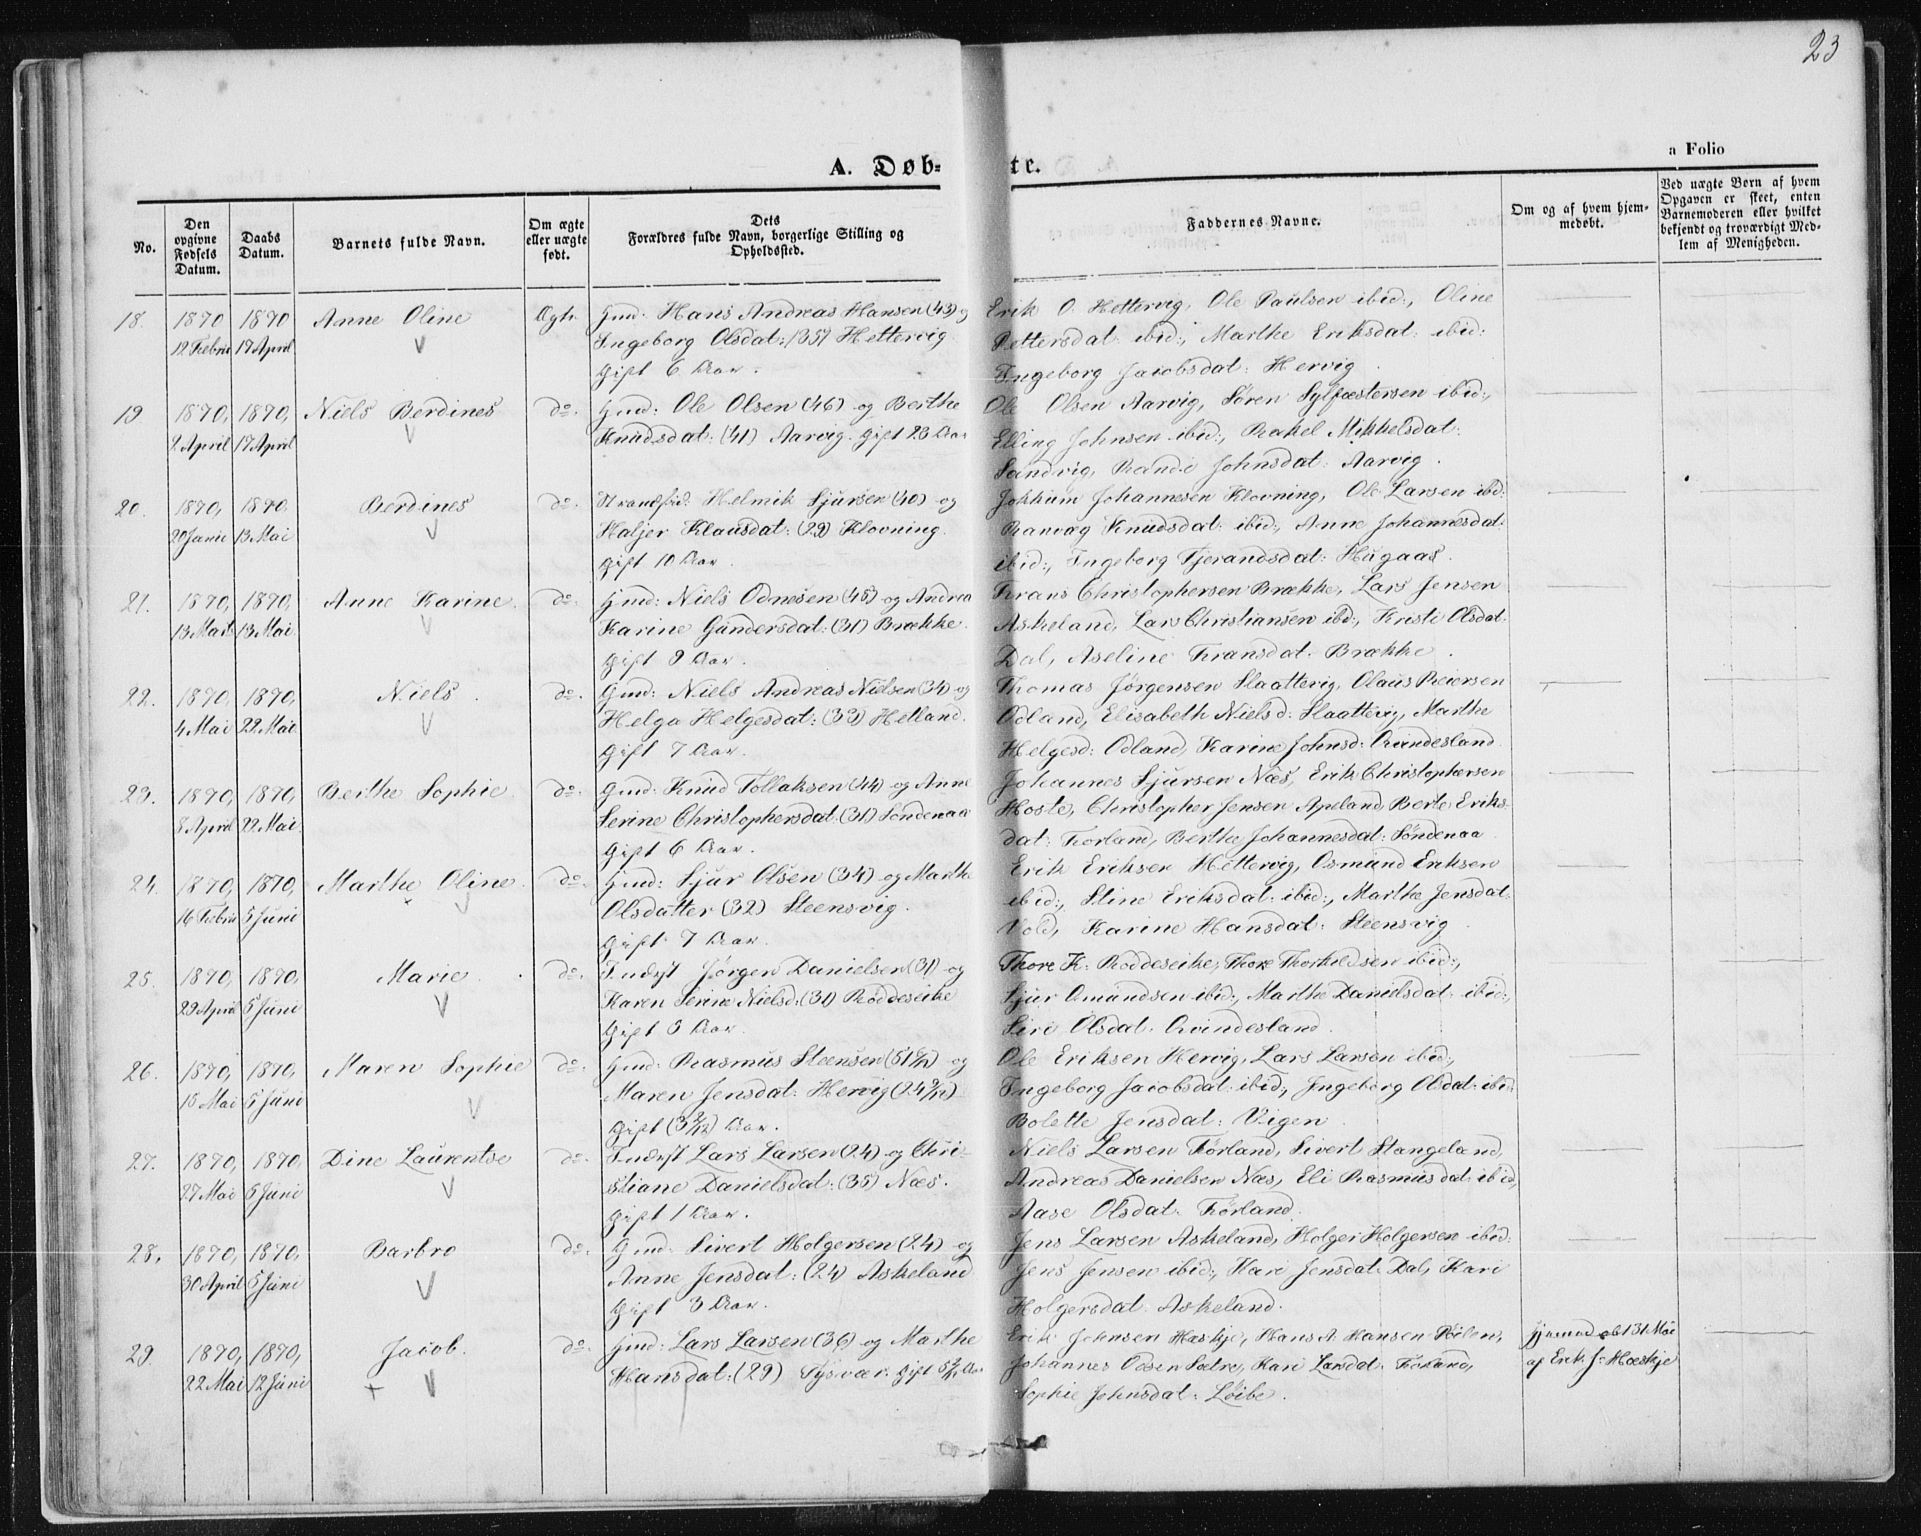 23
A. Døb-
te.
a Folio
No.
Den opgivne Fødsels Datum.
Daabs Datum.
Barnets fulde Navn.
Om ægte eller uægte født.
Dets Forældres fulde Navn, borgerlige Stilling og Opholdssted.
Faddernes Navne.
Om og af hvem hjemmedøbt.
Ved uægte Børn af hvem Opgaven er skeet, enten Barnemoderen eller hvilket bekjendt og troværdigt Medlem af Menigheden.
18. 1870 1870 Anne Oline Ægte. Gmd: Hans Andreas Hansen (43) og
12 Febru 17 April Ingeborg Olsdat: (35) Hettervig.
Gift 6 Aar.
Erik O. Hettervig, Ole Paulsen ibid:, Oline
Pettersdat: ibid:, Marthe Eriksdat: ibid:
Ingeborg Jacobsdat: Hervig.
19 1870, 1870, Niels Berdines do. Gmd: Ole Olsen (46) og Berthe
2 April 17 April Knudsdat: (41) Aarvig. Gift 23 Aar
Ole Olsen Aarvig, Søren Sylfæstersen ibid:,
Elling Johnsen ibid:, Rakel Mikkelsdat:
Sandvig, Rande Johnsdat: Aarvig.
20. 1870, 1870 Berdines do. Strandsid: Helmik Sjursen (40) og
20 Janu 13 Mai Haljer Klausdat: (29) Klovning.
Gift 10 Aar.
Jokkum Johannesen Klovning, Ole Larsen ibid:
Ranvåg Knudsdat: ibid:, Anne Johannesdat:
ibid:, Ingeborg Tjerandsdat: Hugaas.
21. 1870, 1870, Anne Karine. do. Gmd: Niels Odnesen (45) og Andrea
13 Mart 13 Mai Karine Gundersdat: (31) Brække.
Gift 9 Aar.
Frans Christophersen Brække, Lars Jensen
Askeland, Lars Christiansen ibd:, Kristi Olsdat:
Dal, Aseline Fransdat: Brække.
22. 1870, 1870, Niels. do. Gmd: Niels Andreas Nielsen (34) og
4 Mai 22 Mai Helga Helgesdat: (33) Hetland.
Gift 7 Aar.
Thomas Jørgensen Slaattevig, Olaus Reiersen
Odland, Elisabeth Nielsd: Slaattevig, Marthe
Helgesd: Odland, Karine Johnsd: Qvindesland.
23. 1870, 1870, Berthe Sophie. do. Gmd: Knud Tollaksen (44) og Anne
8 April 22 Mai Serine Christophersdat: (31) Søndenaa
Gift 6 Aar.
Johannes Sjursen Næs, Erik Christophersen
Hoste, Christopher Jensen Apeland, Berte Eriks-
dat: Førland, Berthe Johannesdat: Søndenaa
24. 1870, 1870, Marthe Oline. do. Gmd: Sjur Olsen (34) og Marthe
16 Febru 5 Juni Olsdatter (32) Steensvig.
Gift 7 Aar.
Erik Eriksen Hettervig, Osmund Eriksen
ibid:, Stine Eriksdat: ibid:, Marthe Jensdat:
Vold, Karine Hansdat: Steensvig
25. 1870, 1870, Marie. do. Inderst Jørgen Danielsen (31) og
23 April 5 Juni Karen Serine Nielsd: (31) Røddeseike
Gift 3 Aar.
Thore K. Røddeseike, Thore Thorkildsen ibid:,
Sjur Omundsen ibid:, Marthe Danielsdat: ibid:,
Siri Olsdat: Qvindesland.
26. 1870, 1870, Maren Sophie do. Gmd: Rasmus Steensen og
15 Mai 5 Juni Maren Jensdat: Hervig (24 9/12)
Gift Aar.
Ole Eriksen Hervig, Lars Larsen ibid:,
Ingeborg Jacobsdat: ibid:, Ingeborg Olsdat: ibid:
Bolette Jensdat: Vigen
27. 1870, 1870, Dine Laurentse do. Inderst Lars Larsen (24) og Chri-
27 Mai 6 Juni stiane Danielsdat: (35) Næs.
Gift 1 Aar.
Niels Larsen Førland, Sivert Stangeland,
Andreas Danielsen Næs, Eli Rasmusdat: ibid,
Aase Olsdat: Førland.
28. 1870, 1870, Barbro do. Gmd: Sivert Holgersen (24) og
30 April 5 Juni Anne Jensdat: (24) Askeland
Gift 3 Aar.
Jens Larsen Askeland, Holger Holgersen ibid:
Jens Jensen ibid:, Kari Jensdat: Dal, Kari
Holgersdat: Askeland.
29. 1870, 1870, Jacob. do. Gmd: Lars Larsen (36) og Marthe
22 Mai 12 Juni Hansdat: (29) Sysvær. Gift
Erik Johnsen Hæskje, Hans A. Hansen
Johannes Odsen Sætre, Kari Larsdat: Førland,
Sophie Johnsdat: Løibe.
Hjemmedøbt 31 Mai
af Erik J: Hæskje